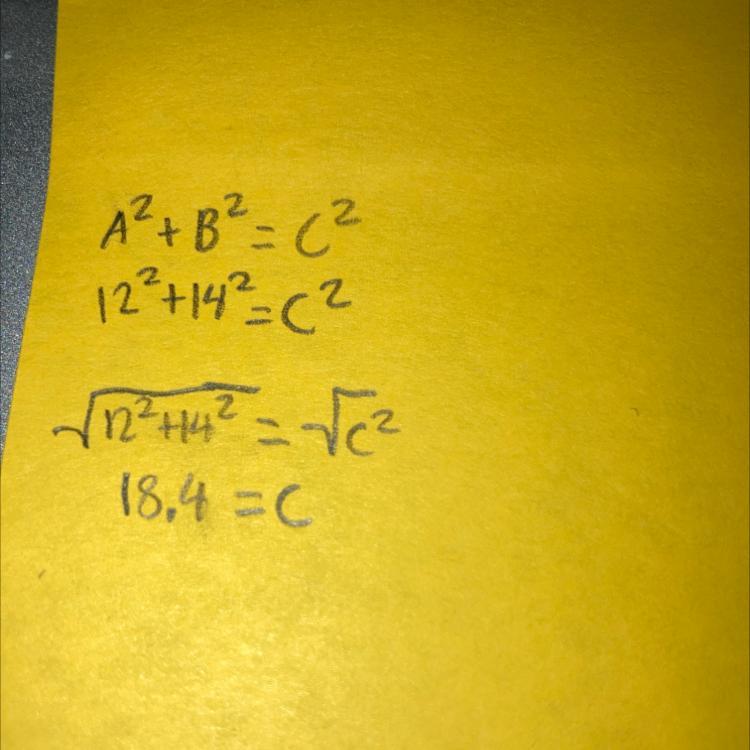 A² + B² = C²
12² + 14² = C²
√12² + 14² = √C²
18.4 = C